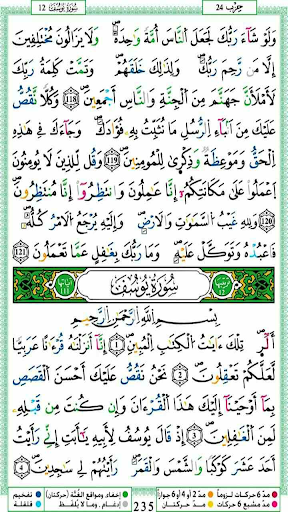 سُورَةُ يُوسُفَ 12 حِزْب 24
وَلَوْ شَآءَ رَبُّكَ لَجَعَلَ اَلنَّاسَ أُمَّةً وَٰحِدَةً وَلَا يَزَالُونَ مُخْتَلِفِينَ
إِلَّا مَن رَّحِمَ رَبُّكَ وَلِذَٰلِكَ خَلَقَهُمْ وَتَمَّتْ كَلِمَةُ رَبِّكَ
لَأَمْلَأَنَّ جَهَنَّمَ مِنَ اَلْجِنَّةِ وَالنَّاسِ أَجْمَعِينَ 118 وَكُلّاً نَّقُصُّ
عَلَيْكَ مِنَ اَنۢبَآءِ اِلرُّسُلِ مَا نُثَبِّتُ بِهِۦ فُؤَادَكَ وَجَآءَكَ فِي هَٰذِهِ
اِلْحَقُّ وَمَوْعِظَةٌ وَذِكْرَىٰ لِلْمُومِنِينَ 119 وَقُل لِّلَّذِينَ لَا يُومِنُونَ
اَعْمَلُوا عَلَىٰ مَكَانَتِكُمُ إِنَّا عَٰمِلُونَ وَانتَظِرُوا إِنَّا مُنتَظِرُونَ
120 وَلِلهِ غَيْبُ السَّمَٰوَٰتِ وَالَارْضِ وَإِلَيْهِ يَرْجِعُ الَامْرُ كُلُّهُ
فَاعْبُدْهُ وَتَوَكَّلْ عَلَيْهِ وَمَا رَبُّكَ بِغَٰفِلٍ عَمَّا تَعْمَلُونَ 121
سُورَةُ يُوسُفَ
بِسْمِ اللهِ الرَّحْمَٰنِ الرَّحِيمِ
أَلَٓرۖ تِلْكَ ءَايَٰتُ الْكِتَٰبِ الْمُبِينِ 1 إِنَّا أَنزَلْنَٰهُ قُرْءَٰناً عَرَبِيّاً
لَّعَلَّكُمْ تَعْقِلُونَ 2 نَحْنُ نَقُصُّ عَلَيْكَ أَحْسَنَ اَلْقَصَصِ
بِمَا أَوْحَيْنَا إِلَيْكَ هَٰذَا اَلْقُرْءَانَ وَإِن كُنتَ مِن قَبْلِهِۦ
لَمِنَ اَلْغَٰفِلِينَ 3 إِذْ قَالَ يُوسُفُ لِأَبِيهِ يَٰأَبَتِ إِنِّي رَأَيْتُ
أَحَدَ عَشَرَ كَوْكَباً وَالشَّمْسَ وَالْقَمَرَ رَأَيْتُهُمْ لِي سَٰجِدِينَ 4
مدّ 6 حركات لزوماً مدّ 2 أو 4 أو 6 جوازاً إخفاء، ومواقع الغُنَّة (حركتان) تفخيم
مدّ مشبع 6 حركات مدّ حركتان إدغام، وما لا يُلفَظ قلقلة
235